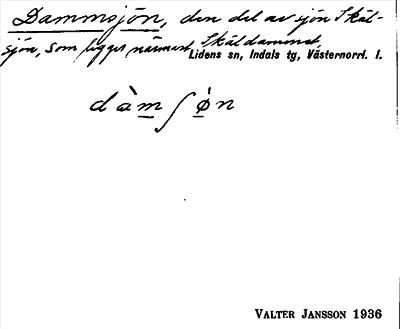 Dammsjön, den del av sjön Skäl-
sjön, som ligger närmast Skäldammet
Lidens sn, Indals tg, Västernorrl. l.
dàm̲ʃø̲̀n
VALTER JANSSON 1936